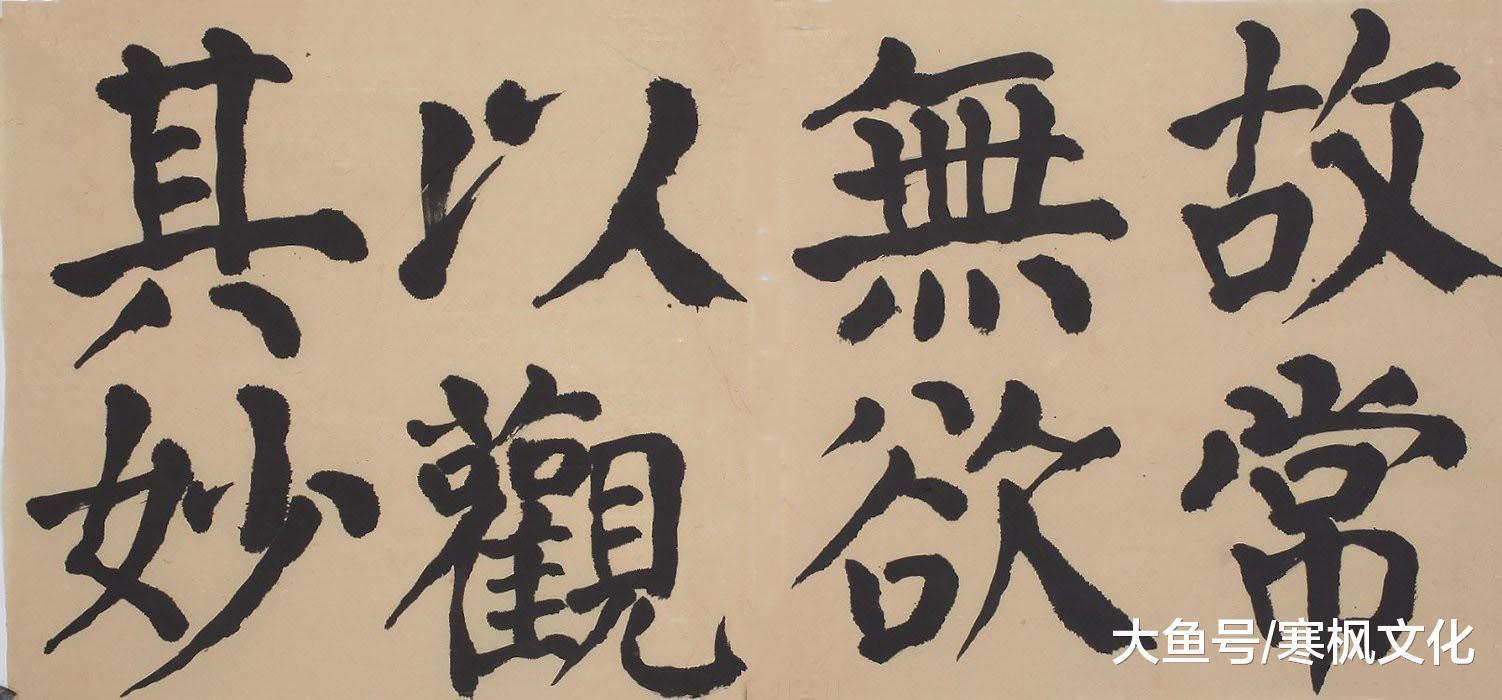 故常
無欲
以觀
其妙
大鱼号/寒枫文化